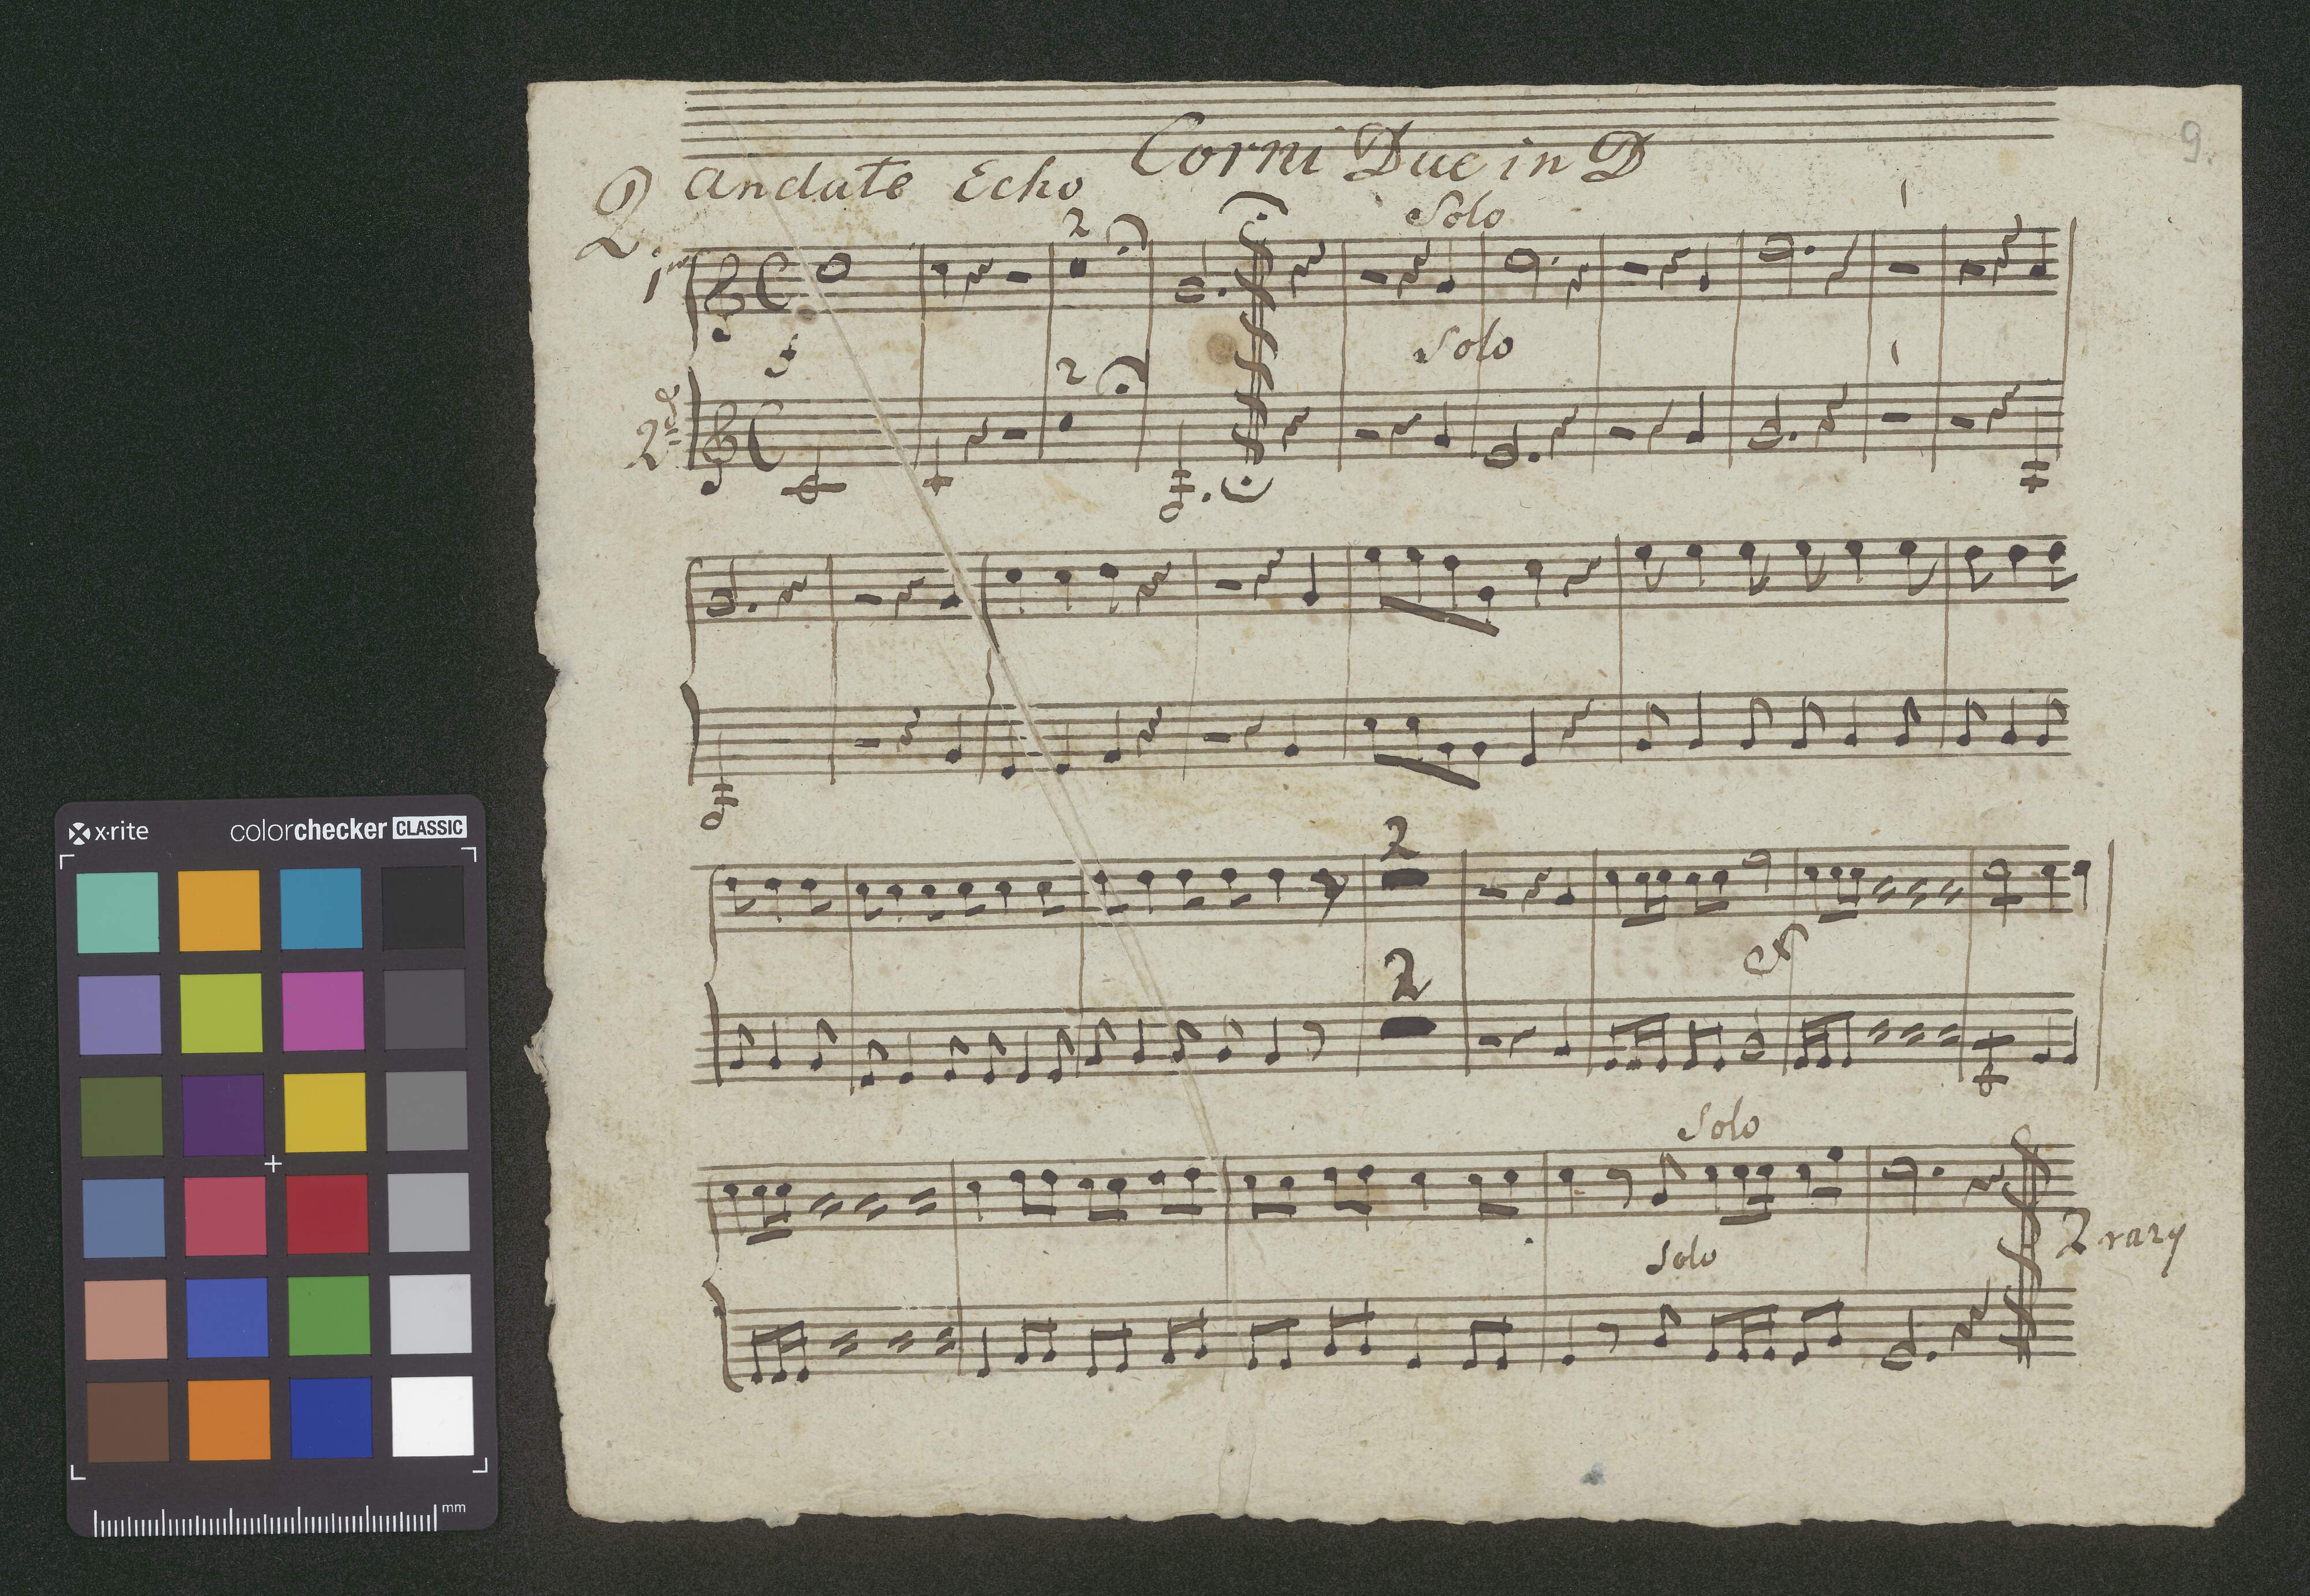 Corni Due in D
9.
2. Andate Echo
Solo
2
1
1mo
f
Solo
2
1
2d
2
2
x·rite colorchecker CLASSIC
Solo
Solo
2 razy
mm